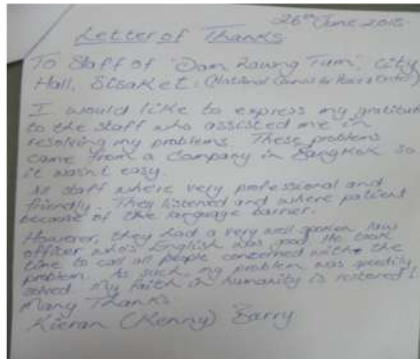 26th June 2018
Letter of Thanks
To Staff of "Dam Rawng Tum", City
Hall, Sisaket. (National Council for Peace & Order)
I would like to express my gratitude
to the staff who assisted me in
resolving my problems. These problems
came from a Company in Bangkok so
it wasn't easy.
All staff where very professional and
friendly. They listened and where patient
because of the language barrier.
However, they had a very well spoken law
officer who's English was good. He took
time to call all people concerned with the
problem. As such, my problem was speedily
solved. My faith in humanity is restored!
Many Thanks
Kieran (Kenny) Barry